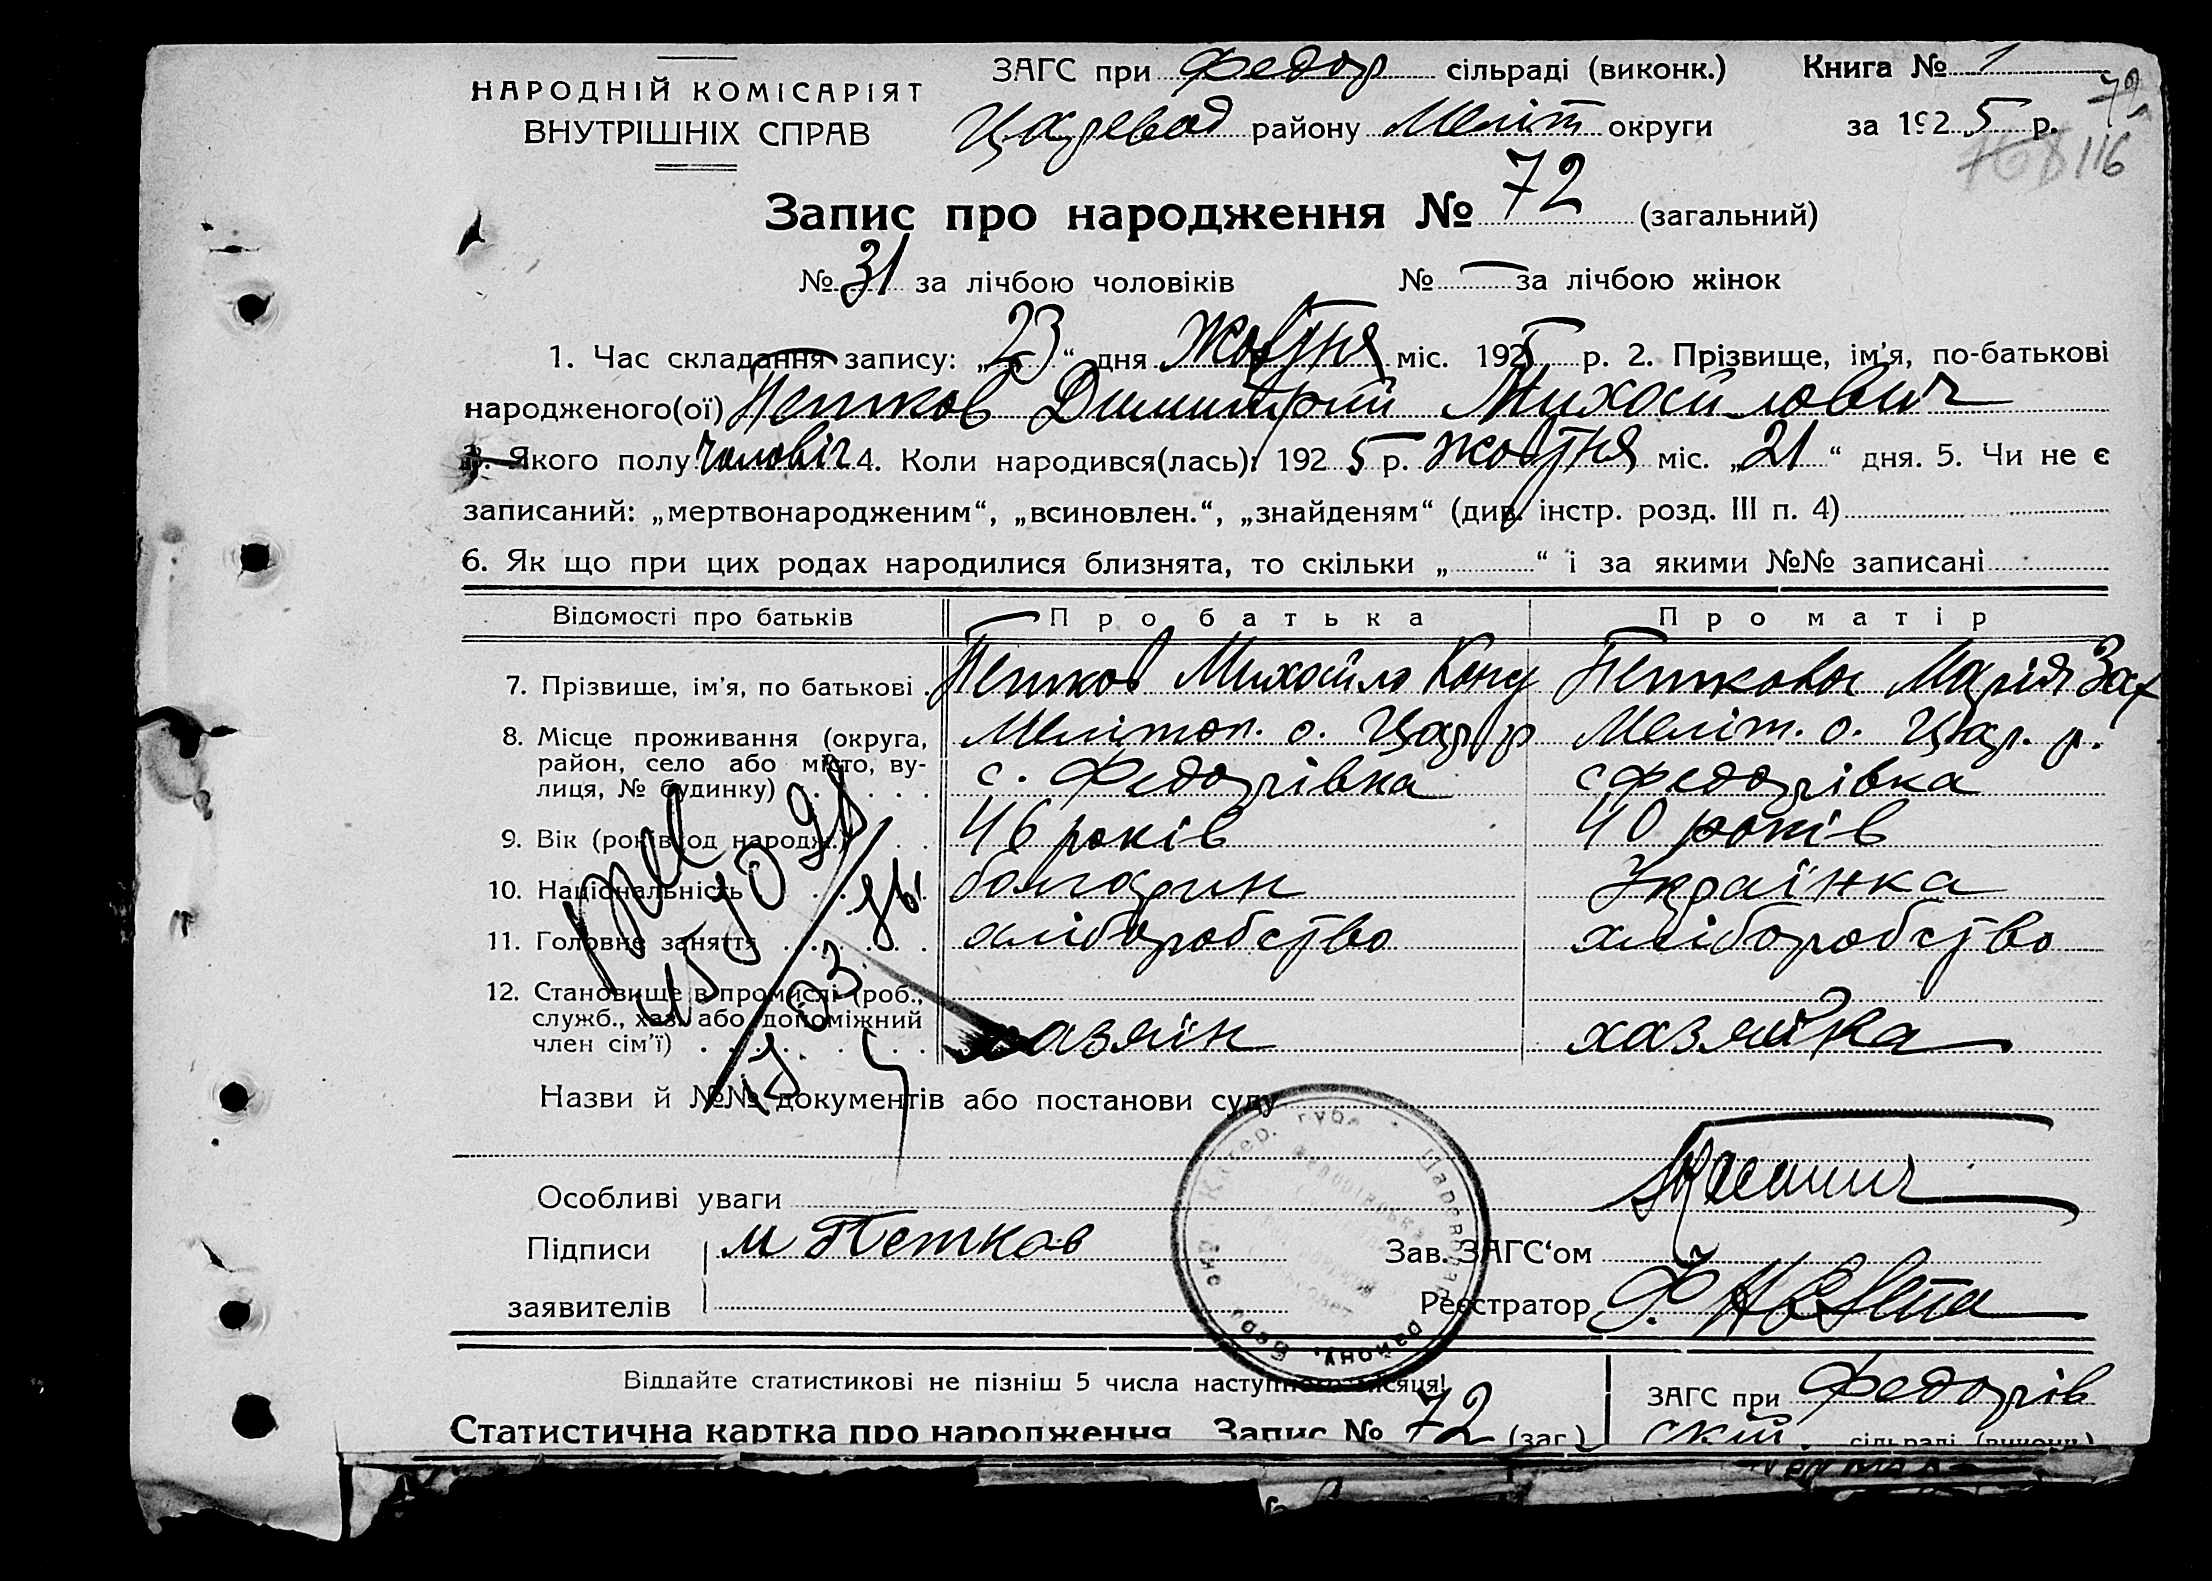 НАРОДНІЙ КОМІСАРІЯТ
ВНУТРІШНІХ СПРАВ
ЗАГС при Федор сільраді (виконк.) Книга № 1
Царевод району Меліт округи за 1925 р.
72
768 116
Запис про народження № 72 (загальний)
№ 31 за лічбою чоловіків № — за лічбою жінок
1. Час складання запису: „23“ дня Жовтня міс. 1925 р. 2. Прізвище, ім'я, по-батькові
народженого(ої) Петков Димитрий Михайлович
3. Якого полу чоловіч 4. Коли народився(лась): 1925 р. жовтня міс. „21“ дня. 5. Чи не є
записаний: „мертвонародженим“, „всиновлен.“, „знайденям“ (див. інстр. розд. III п. 4)
6. Як що при цих родах народилися близнята, то скільки „ “ і за якими №№ записані
Відомості про батьків Про батька Про матір
7. Прізвище, ім'я, по батькові . Петков Михайло Конд Петкова Марія Зах
8. Місце проживання (округа, Мелітоп. о. Цар р Меліт. о. Цар. р.
район, село або місто, ву- с. Федорівка с Федорівка
лиця, № будинку) . . . . . .
9. Вік (років од народж.) . . 46 років 40 років
10. Національність . . . . болгарин Українка
11. Головне заняття . . . . . . хліборобство хліборобство
12. Становище в промислі (роб.,
служб., хаз. або допоміжний
член сім'ї) . . . . . . . . хазяїн хазяйка
Назви й №№ документів або постанови суду
Особливі уваги
Підписи М Петков Зав. ЗАГС'ом
заявителів Реєстратор Ф.
Віддайте статистикові не пізніш 5 числа наступного місяця!
Статистична картка про народження Запис № 72 (заг.)
ЗАГС при Федорів
ский. сільраді (виконк.)